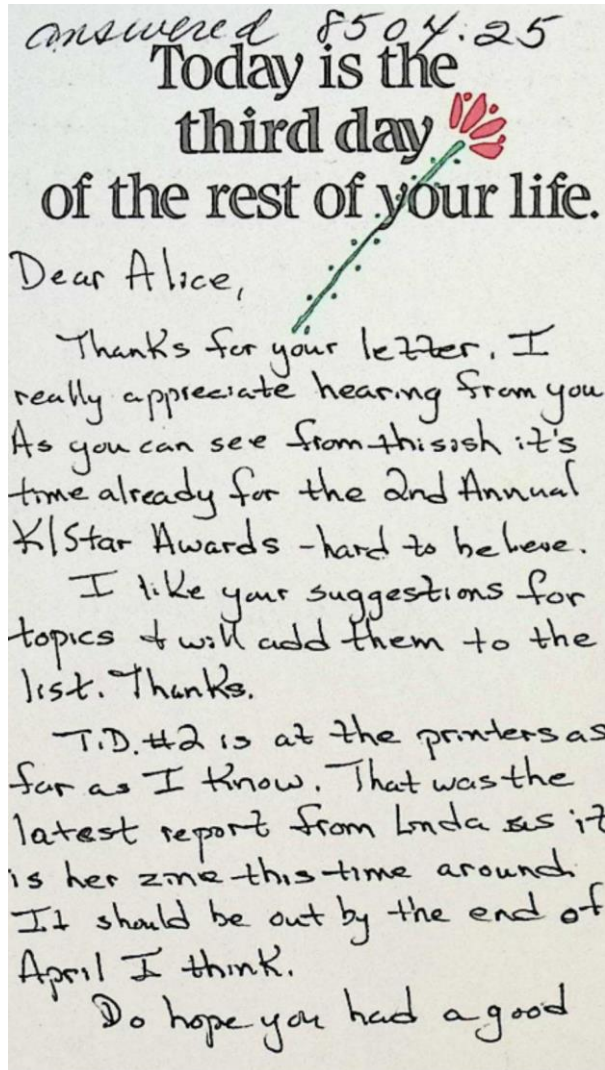 answered 8504.25
Today is the
third day
of the rest of your life.
Dear Alice,
Thanks for your letter. I
really appreciate hearing from you
As you can see from thisish it's
time already for the 2nd Annual
K/Star Awards - hard to believe.
I like your suggestions for
topics & will add them to the
list. Thanks.
T.D. #2 is at the printers as
far as I know. That was the
latest report from Linda as it
is her zine this time around.
It should be out by the end of
April I think.
Do hope you had a good